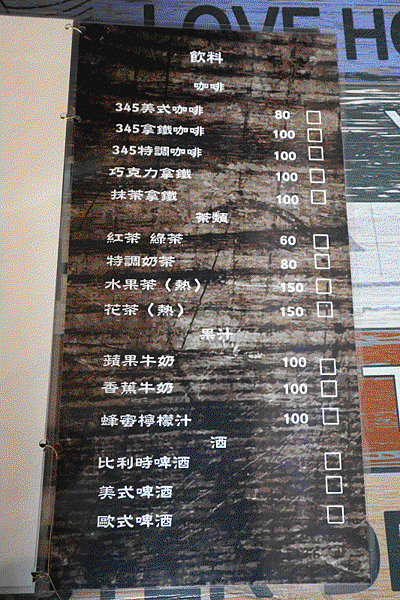 LOVE HO
飲料
咖啡
345美式咖啡 80 □
345拿鐵咖啡 100 □
345特調咖啡 100 □
巧克力拿鐵 100 □
抹茶拿鐵 100 □
茶類
紅茶 綠茶 60 □
特調奶茶 80 □
水果茶（熱） 150 □
花茶（熱） 150 □
果汁
蘋果牛奶 100 □
香蕉牛奶 100 □
蜂蜜檸檬汁 100 □
酒
比利時啤酒 □
美式啤酒 □
歐式啤酒 □